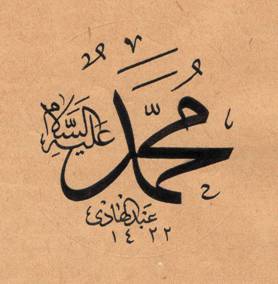 محمد
عليه السلام
عبد الهادي
١٤٢٢